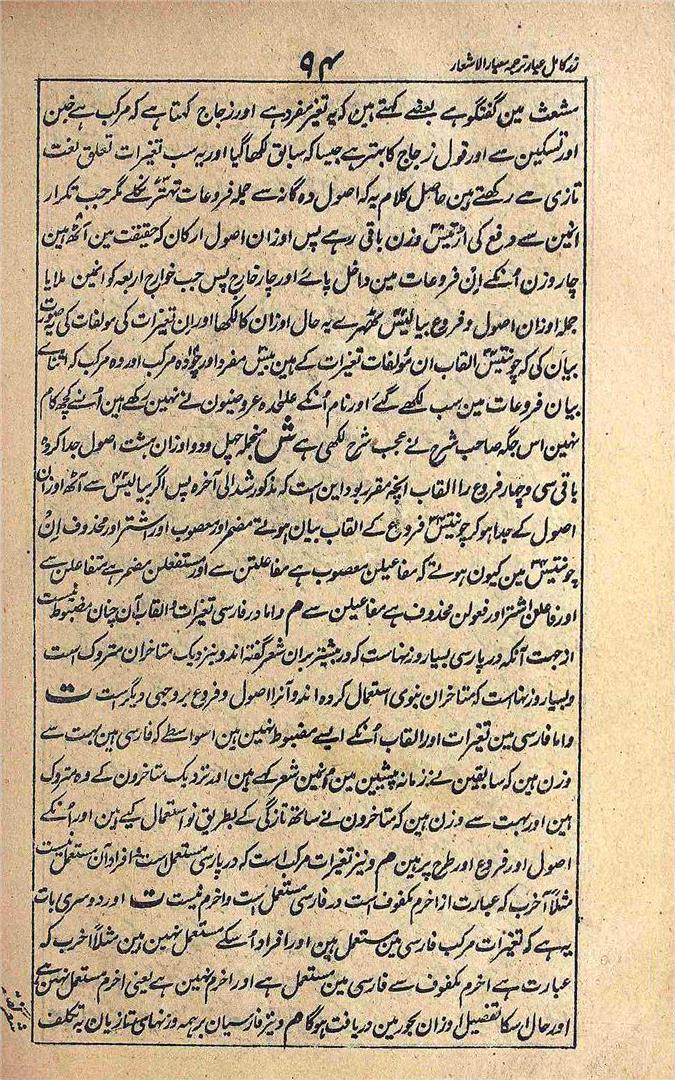 زر کامل عیار ترجمہ معیار الاشعار
۹۴
مشعث مین گفتگو ہے بعضے کہتے ہین کہ یہ تغیر مفرد ہے اور زجاج کہتا ہے کہ مرکب ہے خبن
اور تسکین سے اور قول زجاج کا بہتر ہے جیسا کہ سابق لکھا گیا اور یہ سب تغیرات تعلق لغت
تازی سے رکھتے ہین حاصل کلام یہ کہ اصول دہ گانہ سے جملہ فروعات تہتر نکلے مگر جب تکرار
انہین سے رفع کی اڑتیس وزن باقی رہے پس اوزان اصول ارکان کہ حقیقت مین آٹھ ہین
چار وزن اُنکے اِن فروعات مین داخل پائے اور چار خارج پس جب خوارج اربعہ کو انہین ملایا
جملہ اوزان اصول و فروع بیالیس ٹھہرے یہ حال اوزان کا لکھا اور اِن تغیرات کی مولفات کی یہ صورت
بیان کی کہ چونتیس القاب ان مُولفات تغیرات کے ہین بیس مفرد اور چودہ مرکب اور دہ مرکب کہ اثنائے
بیان فروعات مین سب لکھے گئے اور نام اُنکے علٰحدہ عروضیون نے نہین رکھے ہین اُنسے کچھ کام
نہین اس جگہ صاحب شرح نے عجب شرح لکھی ہے ش منجملہ چہل و دو اوزان ہشت اصول جدا کردہ
باقی سی و چہار فروع را القاب آنچہ مقرر بود این است کہ مذکور شد الی آخرہ پس اگر بیالیس سے آٹھ اوزان
اصول کے جدا ہو کر چونتیس فروع کے القاب بیان ہوئے تو مضمر اور معصوب اور اشتر اور محذوف اِن
چونتیس مین کیون ہوئے کہ مفاعیلن معصوب ہے مفاعلتن سے اور مستفعلن مضمر ہے متفاعلن سے
اور فاعلن اشتر اور فعولن محذوف ہے مفاعیلن سے م واما در فارسی تغیرات و القاب آن چنان مضبوط نیست
از جہت آنکہ در پارسی بسیار وزنہاست کہ در پیشتر بران شعر گفتہ اند و نزدیک متاخران متروک است
و بسیار وزنہاست کہ متاخران بنوی استعمال کردہ اند و آنرا اصول و فروع بر وجہی دیگر است ت
واما فارسی مین تغیرات اور القاب اُنکے ایسے مضبوط نہین ہین اسواسطے کہ فارسی مین بہت سے
وزن ہین کہ سابقین نے زمانہ پیشین مین اُنہین شعر کہے ہین اور نزدیک متاخرون کے وہ متروک
ہین اور بہت سے وزن ہین کہ متاخرون نے ساتھ تازگی کے بطریق نو استعمال کیے ہین اور اُنکے
اصول اور فروع اور طرح پر ہین م و نیز تغیرات مرکب است کہ در پارسی مستعمل است و افراد آن مستعمل نیست
مثلاً اخرب کہ عبارت از اخرم مکفوف است در فارسی مستعمل است و اخرم نیست ت اور دوسری بات
یہ ہے کہ تغیرات مرکب فارسی مین مستعمل ہین اور افراد اُسکے مستعمل نہین ہین مثلاً اخرب کہ
عبارت ہے اخرم مکفوف سے فارسی مین مستعمل ہے اور اخرم نہین ہے یعنی اخرم مستعمل نہین ہے
اور حال اسکا تفصیل اوزان بحور مین دریافت ہوگا م و نیز فارسیان بر ہمہ وزنہای تازیان بہ تکلف